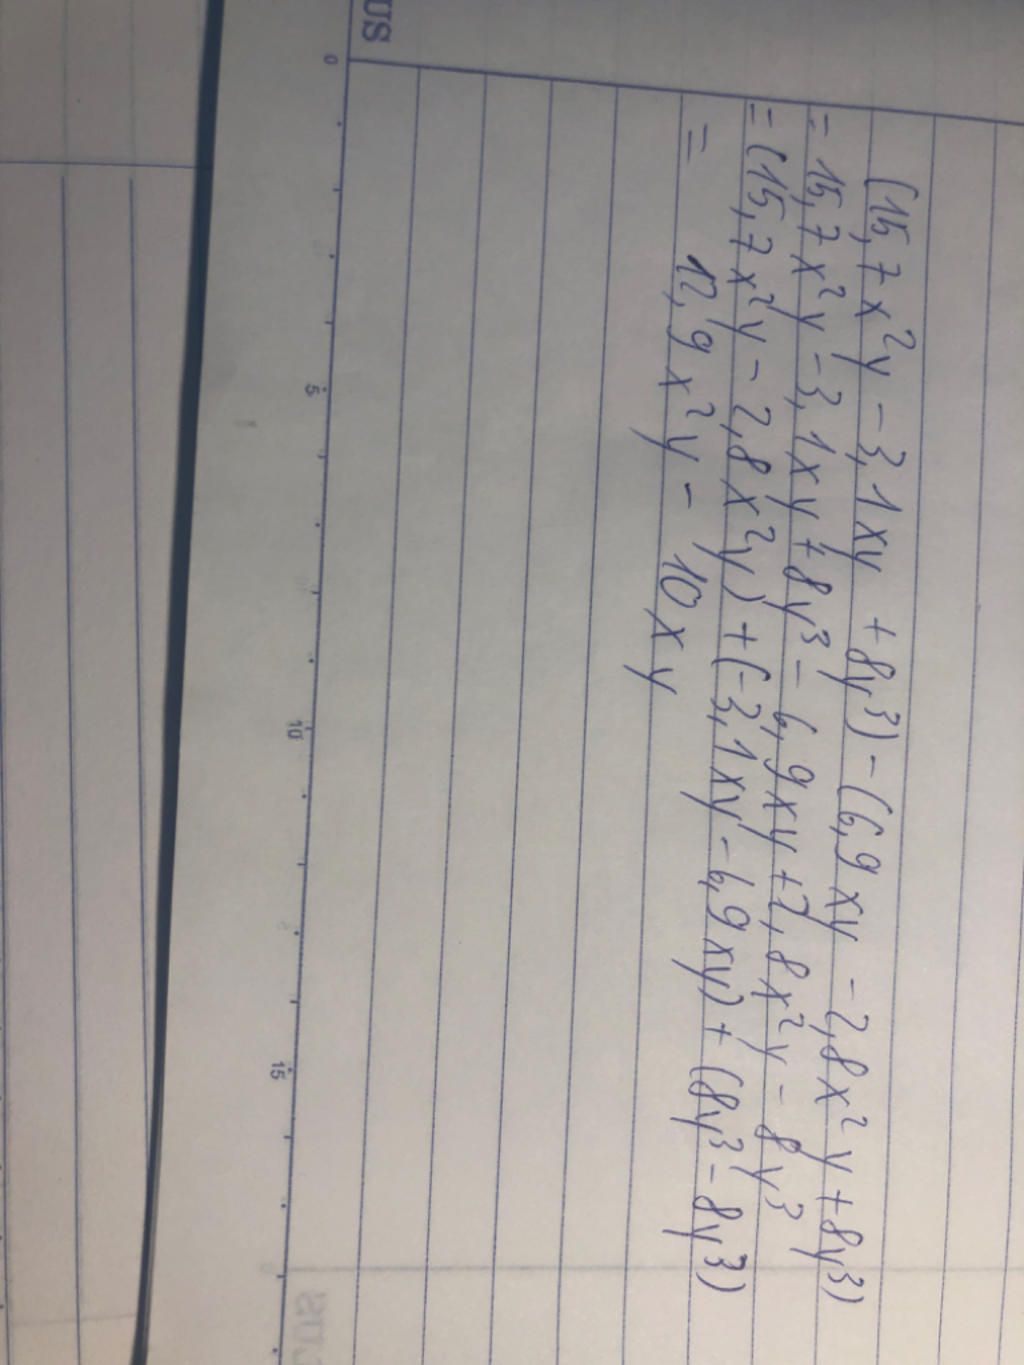 (15,7x²y - 3,1xy + 8y³) - (6,9xy - 2,8x²y + 8y³)
= 15,7x²y - 3,1xy + 8y³ - 6,9xy + 2,8x²y - 8y³
= (15,7x²y - 2,8x²y) + (-3,1xy - 6,9xy) + (8y³ - 8y³)
= 12,9x²y - 10xy
US
0 5 10 15